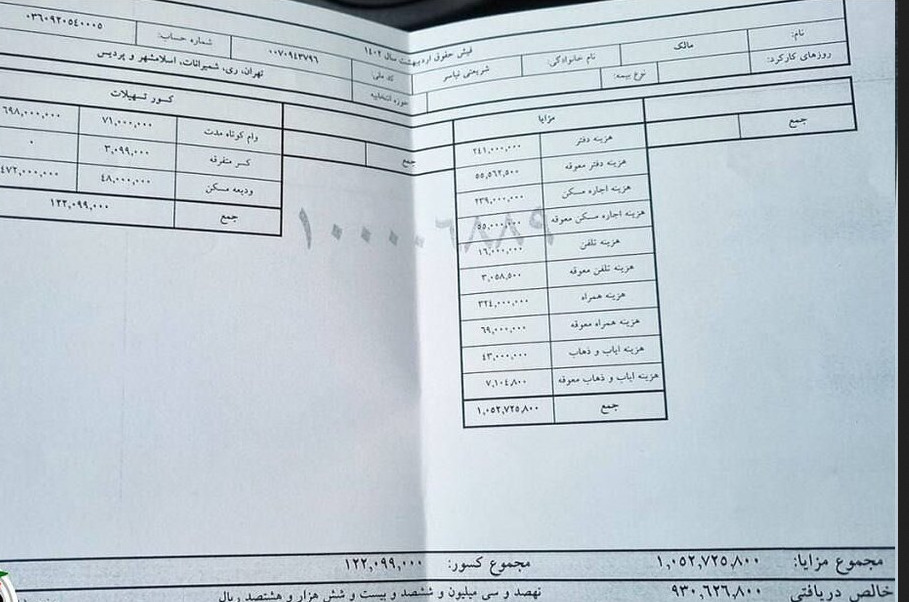 فیش حقوق اردیبهشت سال ۱۴۰۲
نام: مالک نام خانوادگی: شریعتی نیاسر کد ملی: ۰۰۷۰۹۴۳۷۹۶ شماره حساب: ۰۳۶۰۹۲۰۵۴۰۰۰۵
روزهای کارکرد: نوع بیمه: حوزه انتخابیه تهران، ری، شمیرانات، اسلامشهر و پردیس
جمع
مزایا
هزینه دفتر ۲۴۱,۰۰۰,۰۰۰
هزینه دفتر معوقه ۵۵,۵۶۲,۵۰۰
هزینه اجاره مسکن ۲۳۹,۰۰۰,۰۰۰
هزینه اجاره مسکن معوقه ۵۵,۰۰۰,۰۰۰
هزینه تلفن ۱۶,۰۰۰,۰۰۰
هزینه تلفن معوقه ۳,۰۵۸,۵۰۰
هزینه همراه ۳۲۴,۰۰۰,۰۰۰
هزینه همراه معوقه ۶۹,۰۰۰,۰۰۰
هزینه ایاب و ذهاب ۴۳,۰۰۰,۰۰۰
هزینه ایاب و ذهاب معوقه ۷,۱۰۴,۸۰۰
جمع ۱,۰۵۲,۷۲۵,۸۰۰
جمع
کسور تسهیلات
وام کوتاه مدت ۷۱,۰۰۰,۰۰۰ ۶۹۸,۰۰۰,۰۰۰
کسر متفرقه ۳,۰۹۹,۰۰۰ ۰
ودیعه مسکن ۴۸,۰۰۰,۰۰۰ ۴۷۲,۰۰۰,۰۰۰
جمع ۱۲۲,۰۹۹,۰۰۰
مجموع مزایا: ۱,۰۵۲,۷۲۵,۸۰۰ مجموع کسور: ۱۲۲,۰۹۹,۰۰۰
خالص دریافتی ۹۳۰,۶۲۶,۸۰۰ نهصد و سی میلیون و ششصد و بیست و شش هزار و هشتصد ریال